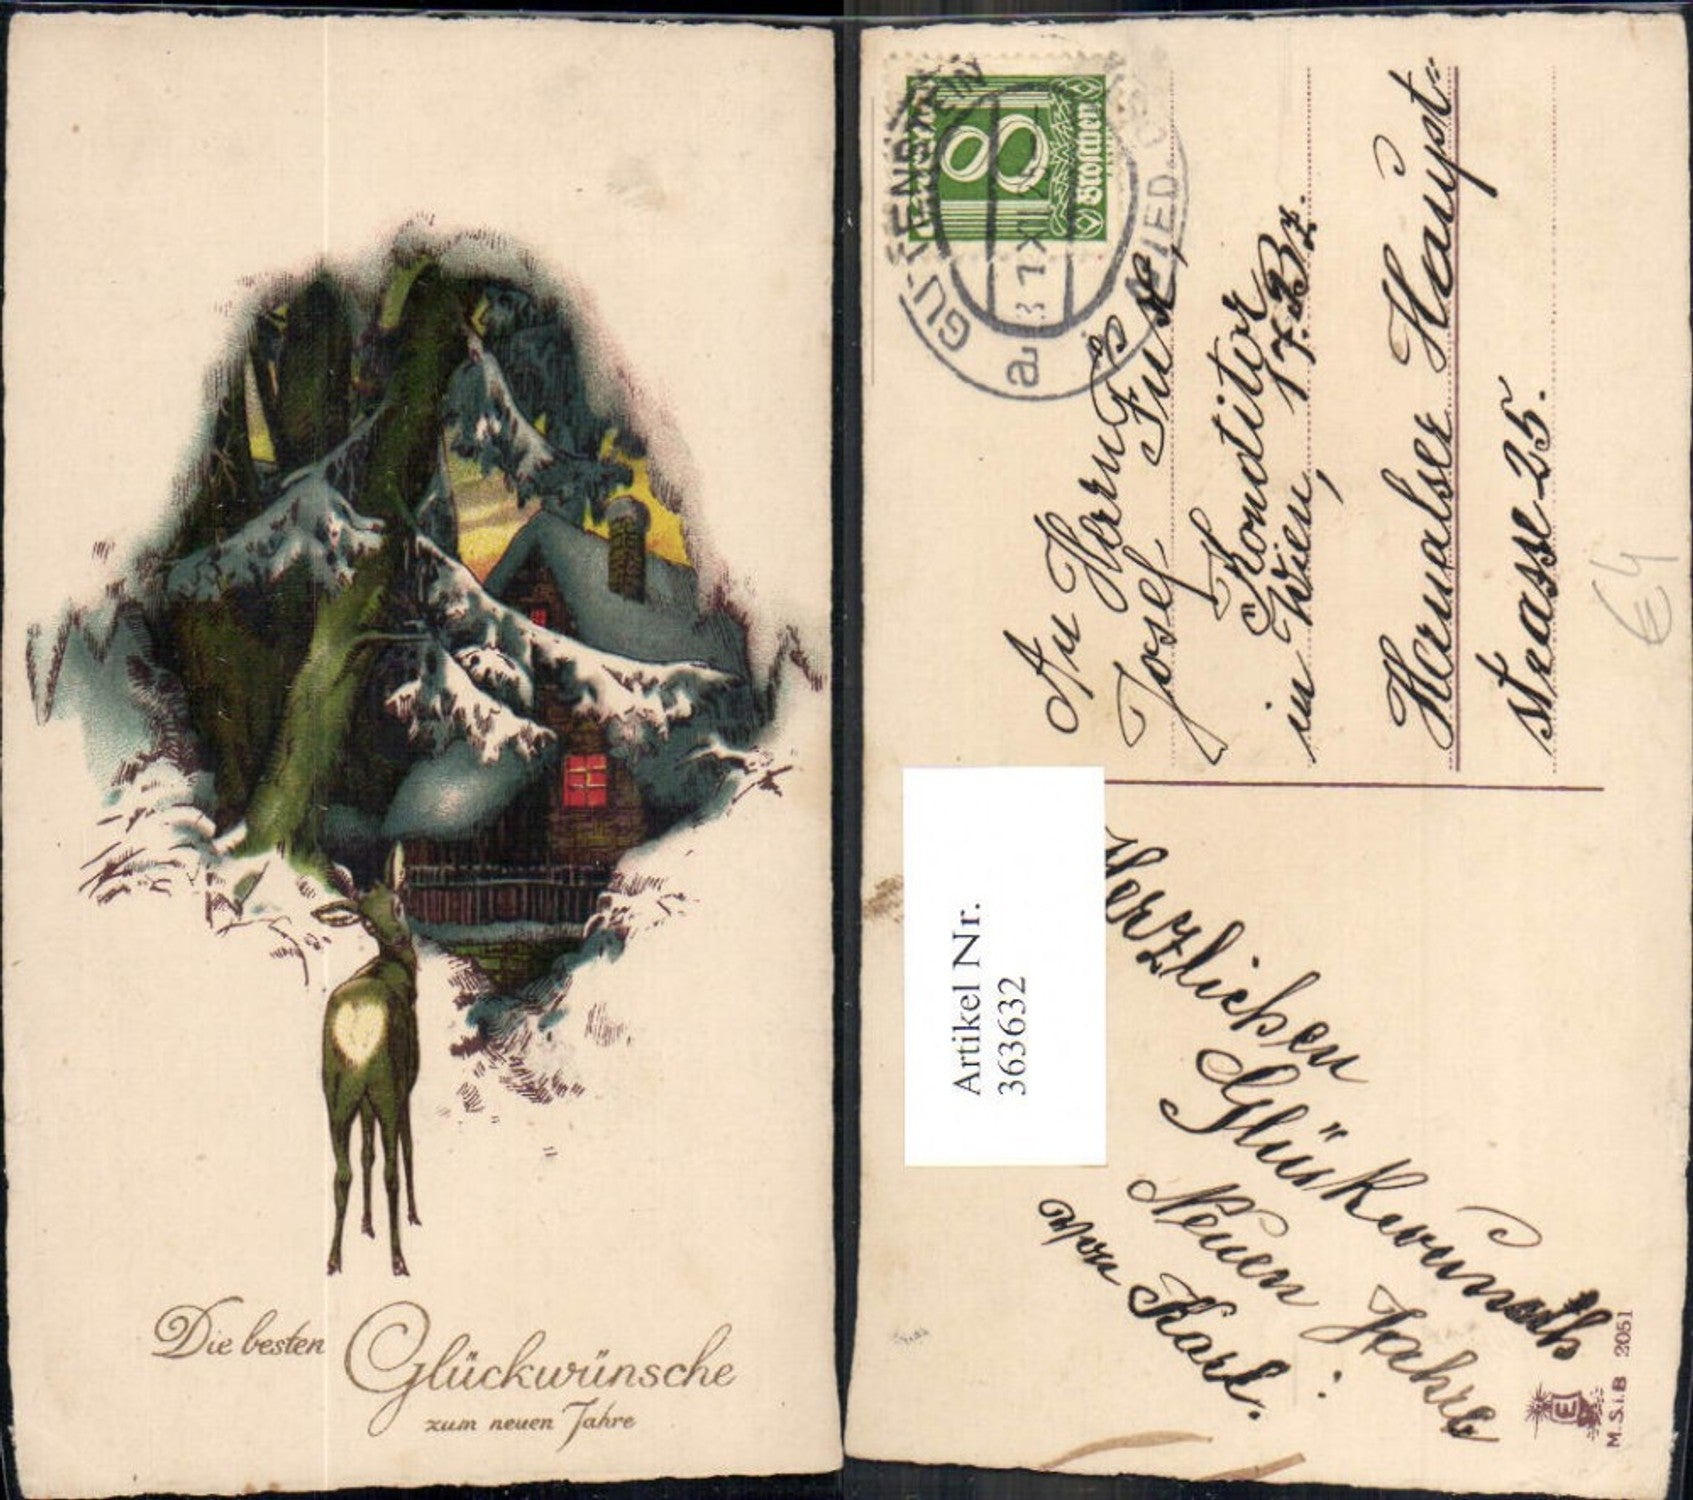 Die besten Glückwünsche
zum neuen Jahre
GUTENSTEIN
a.
31.XII
NIED. ÖST
8
Groschen
An Herrn
Josef
Konditor
in Wien, 17. Bz.
Hernalser Haupt-
strasse 25.
€4
Artikel Nr.
363632
Herzlichen
Glückwunsch
Neuen Jahre
von Karl.
E
M. S. i. B 2051